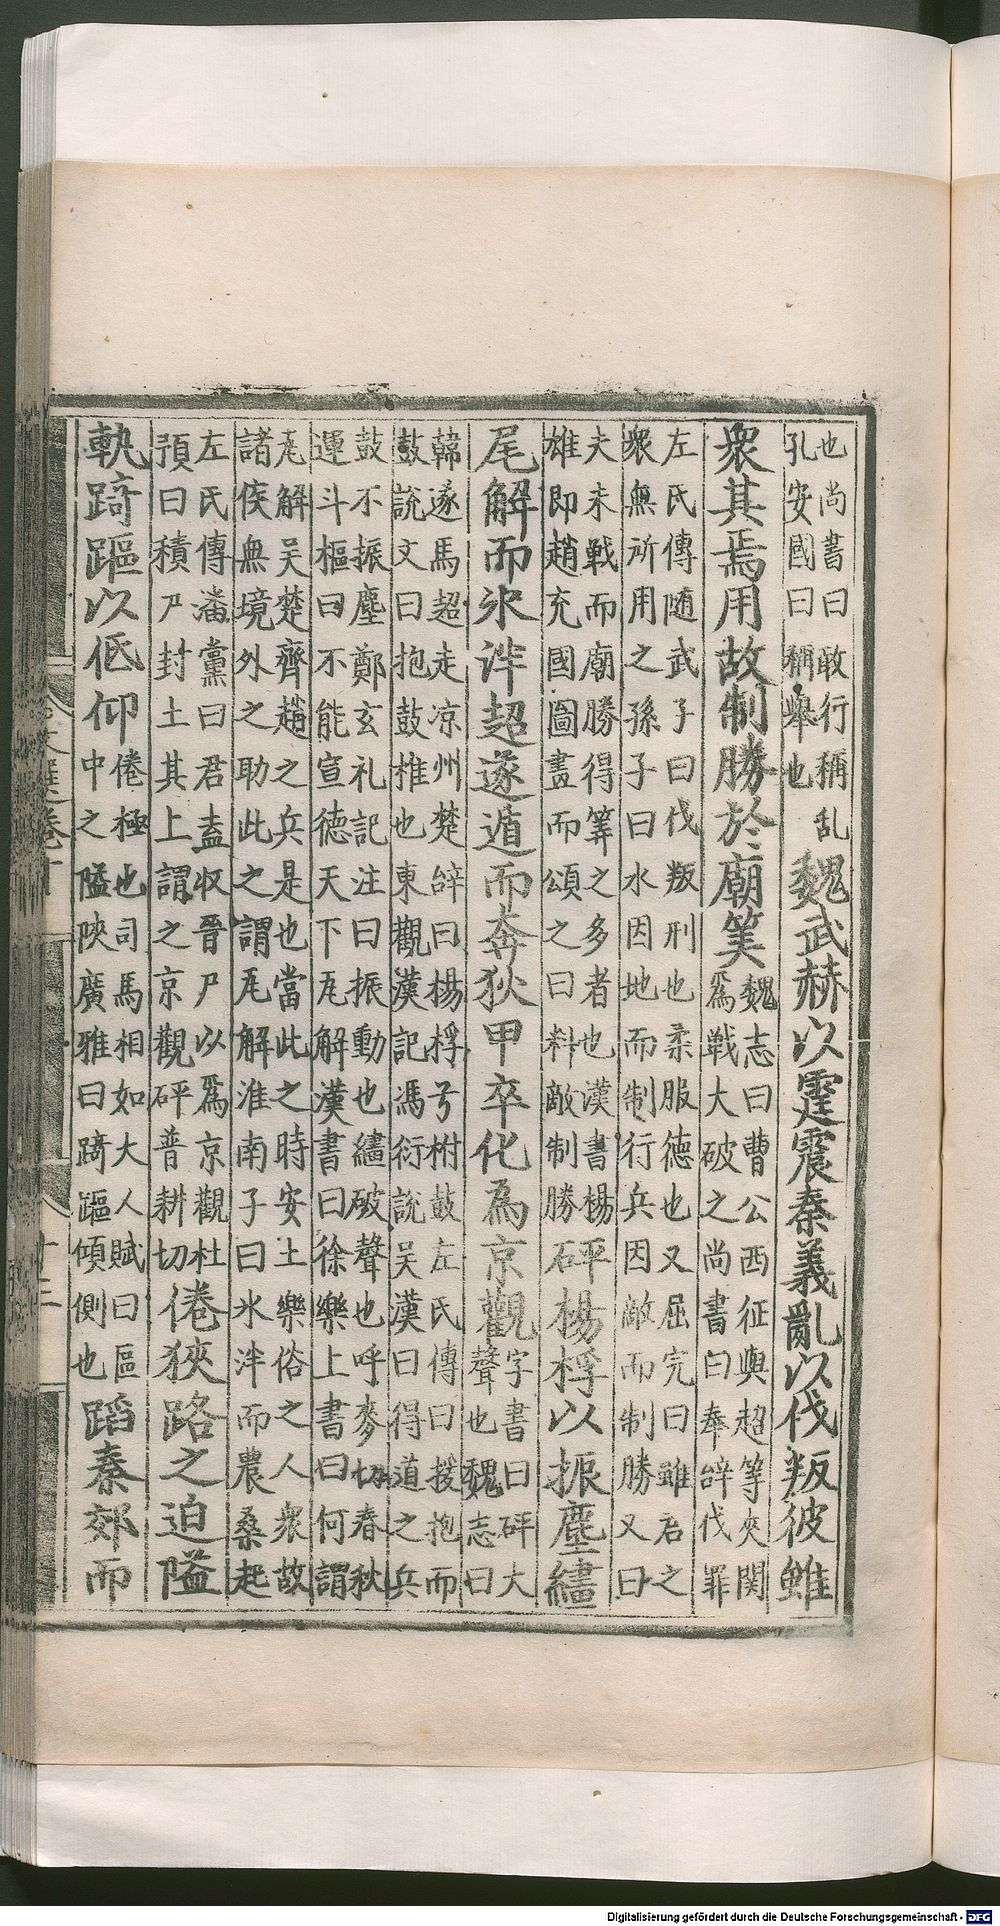 也尚書曰敢行稱乱
孔安國曰稱舉也
魏武赫以霆震奉義亂以伐叛彼雖
衆其焉用故制勝於廟筭
魏志曰曹公西征與超等夾関
爲戰大破之尚書曰奉辝伐罪
左氏傳随武子曰伐叛刑也柔服德也又屈完曰雖君之
衆無所用之孫子曰水因地而制行兵因敵而制勝又曰
夫未戰而廟勝得筭之多者也漢書楊
雄即趙充國圖畫而頌之曰料敵制勝
砰楊桴以振塵繣
尾解而氷泮超遂遁而奔狄甲卒化為京觀
字書曰砰大
聲也魏志曰
韓遂馬超走凉州楚辝曰楊桴兮柎鼓左氏傳曰援抱而
鼓說文曰抱鼓椎也東觀漢記馮衍說吴漢曰得道之兵
鼓不振塵鄭玄礼記注曰振動也繣破聲也呼麥切春秋
運斗樞曰不能宣德天下瓦解漢書曰徐樂上書曰何謂
瓦解吴楚齊趙之兵是也當此之時安土樂俗之人衆故
諸侯無境外之助此之謂瓦解淮南子曰氷泮而農桑起
左氏傳潘黨曰君盍収晉尸以爲京觀杜
預曰積尸封土其上謂之京觀砰普耕切
倦狹路之迫隘
軌踦䠓以低仰
倦極也司馬相如大人賦曰區
中之隘陜廣雅曰踦䠓傾側也
蹈秦郊而
文選卷十
十三
Digitalisierung gefördert durch die Deutsche Forschungsgemeinschaft - DFG